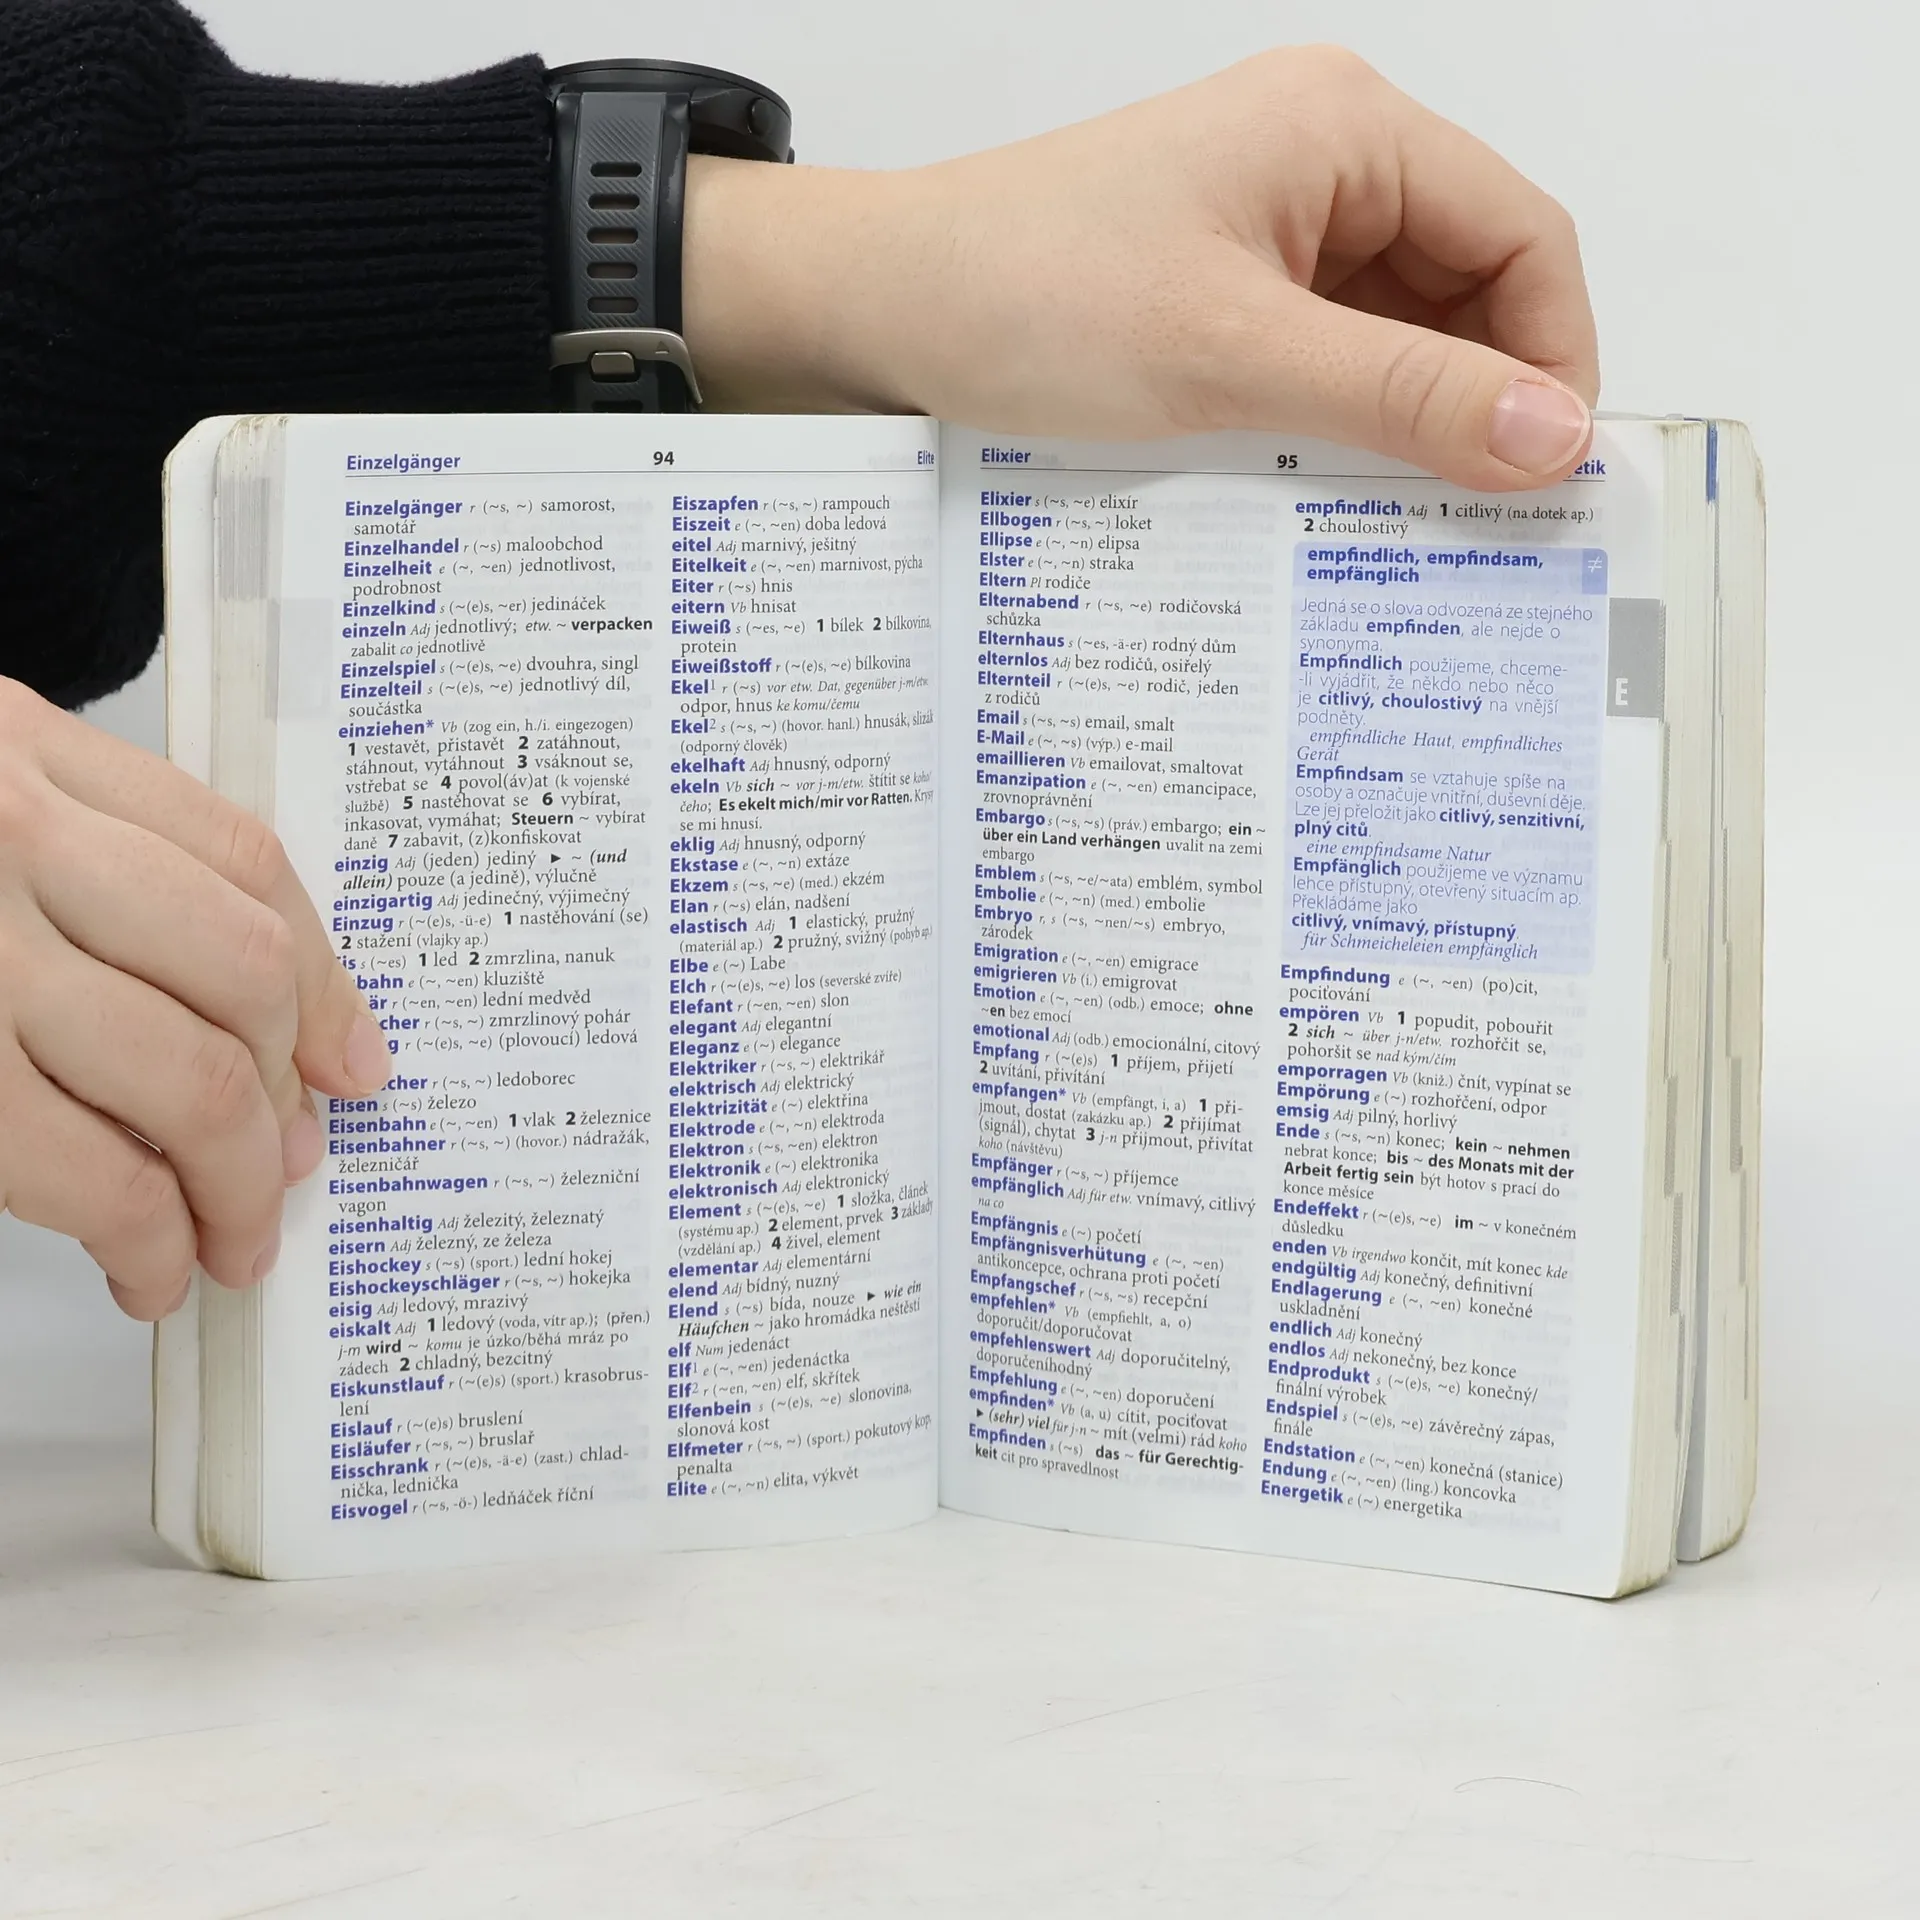 Einzelgänger 94 Elite
Einzelgänger r (~s, ~) samorost,
samotář
Einzelhandel r (~s) maloobchod
Einzelheit e (~, ~en) jednotlivost,
podrobnost
Einzelkind s (~(e)s, ~er) jedináček
einzeln Adj jednotlivý; etw. ~ verpacken
zabalit co jednotlivě
Einzelspiel s (~(e)s, ~e) dvouhra, singl
Einzelteil s (~(e)s, ~e) jednotlivý díl,
součástka
einziehen* Vb (zog ein, h./i. eingezogen)
1 vestavět, přistavět 2 zatáhnout,
stáhnout, vytáhnout 3 vsáknout se,
vstřebat se 4 povol(áv)at (k vojenské
službě) 5 nastěhovat se 6 vybírat,
inkasovat, vymáhat; Steuern ~ vybírat
daně 7 zabavit, (z)konfiskovat
einzig Adj (jeden) jediný ► ~ (und
allein) pouze (a jedině), výlučně
einzigartig Adj jedinečný, výjimečný
Einzug r (~(e)s, -ü-e) 1 nastěhování (se)
2 stažení (vlajky ap.)
is s (~es) 1 led 2 zmrzlina, nanuk
bahn e (~, ~en) kluziště
är r (~en, ~en) lední medvěd
cher r (~s, ~) zmrzlinový pohár
g r (~(e)s, ~e) (plovoucí) ledová
cher r (~s, ~) ledoborec
Eisen s (~s) železo
Eisenbahn e (~, ~en) 1 vlak 2 železnice
Eisenbahner r (~s, ~) (hovor.) nádražák,
železničář
Eisenbahnwagen r (~s, ~) železniční
vagon
eisenhaltig Adj železitý, železnatý
eisern Adj železný, ze železa
Eishockey s (~s) (sport.) lední hokej
Eishockeyschläger r (~s, ~) hokejka
eisig Adj ledový, mrazivý
eiskalt Adj 1 ledový (voda, vítr ap.); (přen.)
j-m wird ~ komu je úzko/běhá mráz po
zádech 2 chladný, bezcitný
Eiskunstlauf r (~(e)s) (sport.) krasobrus-
lení
Eislauf r (~(e)s) bruslení
Eisläufer r (~s, ~) bruslař
Eisschrank r (~(e)s, -ä-e) (zast.) chlad-
nička, lednička
Eisvogel r (~s, -ö-) ledňáček říční
Eiszapfen r (~s, ~) rampouch
Eiszeit e (~, ~en) doba ledová
eitel Adj marnivý, ješitný
Eitelkeit e (~, ~en) marnivost, pýcha
Eiter r (~s) hnis
eitern Vb hnisat
Eiweiß s (~es, ~e) 1 bílek 2 bílkovina,
protein
Eiweißstoff r (~(e)s, ~e) bílkovina
Ekel¹ r (~s) vor etw. Dat, gegenüber j-m/etw.
odpor, hnus ke komu/čemu
Ekel² s (~s, ~) (hovor. hanl.) hnusák, slizák
(odporný člověk)
ekelhaft Adj hnusný, odporný
ekeln Vb sich ~ vor j-m/etw. štítit se koho/
čeho; Es ekelt mich/mir vor Ratten. Krysy
se mi hnusí.
eklig Adj hnusný, odporný
Ekstase e (~, ~n) extáze
Ekzem s (~s, ~e) (med.) ekzém
Elan r (~s) elán, nadšení
elastisch Adj 1 elastický, pružný
(materiál ap.) 2 pružný, svižný (pohyb ap.)
Elbe e (~) Labe
Elch r (~(e)s, ~e) los (severské zvíře)
Elefant r (~en, ~en) slon
elegant Adj elegantní
Eleganz e (~) elegance
Elektriker r (~s, ~) elektrikář
elektrisch Adj elektrický
Elektrizität e (~) elektřina
Elektrode e (~, ~n) elektroda
Elektron s (~s, ~en) elektron
Elektronik e (~) elektronika
elektronisch Adj elektronický
Element s (~(e)s, ~e) 1 složka, článek
(systému ap.) 2 element, prvek 3 základy
(vzdělání ap.) 4 živel, element
elementar Adj elementární
elend Adj bídný, nuzný
Elend s (~s) bída, nouze ► wie ein
Häufchen ~ jako hromádka neštěstí
elf Num jedenáct
Elf¹ e (~, ~en) jedenáctka
Elf² r (~en, ~en) elf, skřítek
Elfenbein s (~(e)s, ~e) slonovina,
slonová kost
Elfmeter r (~s, ~) (sport.) pokutový kop,
penalta
Elite e (~, ~n) elita, výkvět
Elixier 95 etik
Elixier s (~s, ~e) elixír
Ellbogen r (~s, ~) loket
Ellipse e (~, ~n) elipsa
Elster e (~, ~n) straka
Eltern Pl rodiče
Elternabend r (~s, ~e) rodičovská
schůzka
Elternhaus s (~es, -ä-er) rodný dům
elternlos Adj bez rodičů, osiřelý
Elternteil r (~(e)s, ~e) rodič, jeden
z rodičů
Email s (~s, ~s) email, smalt
E-Mail e (~, ~s) (výp.) e-mail
emaillieren Vb emailovat, smaltovat
Emanzipation e (~, ~en) emancipace,
zrovnoprávnění
Embargo s (~s, ~s) (práv.) embargo; ein ~
über ein Land verhängen uvalit na zemi
embargo
Emblem s (~s, ~e/~ata) emblém, symbol
Embolie e (~, ~n) (med.) embolie
Embryo r, s (~s, ~nen/~s) embryo,
zárodek
Emigration e (~, ~en) emigrace
emigrieren Vb (i.) emigrovat
Emotion e (~, ~en) (odb.) emoce; ohne
~en bez emocí
emotional Adj (odb.) emocionální, citový
Empfang r (~(e)s) 1 příjem, přijetí
2 uvítání, přivítání
empfangen* Vb (empfängt, i, a) 1 při-
jmout, dostat (zakázku ap.) 2 přijímat
(signál), chytat 3 j-n přijmout, přivítat
koho (návštěvu)
Empfänger r (~s, ~) příjemce
empfänglich Adj für etw. vnímavý, citlivý
na co
Empfängnis e (~) početí
Empfängnisverhütung e (~, ~en)
antikoncepce, ochrana proti početí
Empfangschef r (~s, ~s) recepční
empfehlen* Vb (empfiehlt, a, o)
doporučit/doporučovat
empfehlenswert Adj doporučitelný,
doporučeníhodný
Empfehlung e (~, ~en) doporučení
empfinden* Vb (a, u) cítit, pociťovat
► (sehr) viel für j-n ~ mít (velmi) rád koho
Empfinden s (~s) das ~ für Gerechtig-
keit cit pro spravedlnost
empfindlich Adj 1 citlivý (na dotek ap.)
2 choulostivý
empfindlich, empfindsam, ≠
empfänglich
Jedná se o slova odvozená ze stejného
základu empfinden, ale nejde o
synonyma.
Empfindlich použijeme, chceme-
-li vyjádřit, že někdo nebo něco
je citlivý, choulostivý na vnější
podněty.
empfindliche Haut, empfindliches
Gerät
Empfindsam se vztahuje spíše na
osoby a označuje vnitřní, duševní děje.
Lze jej přeložit jako citlivý, senzitivní,
plný citů.
eine empfindsame Natur
Empfänglich použijeme ve významu
lehce přístupný, otevřený situacím ap.
Překládáme jako
citlivý, vnímavý, přístupný.
für Schmeicheleien empfänglich
Empfindung e (~, ~en) (po)cit,
pociťování
empören Vb 1 popudit, pobouřit
2 sich ~ über j-n/etw. rozhořčit se,
pohoršit se nad kým/čím
emporragen Vb (kniž.) čnít, vypínat se
Empörung e (~) rozhořčení, odpor
emsig Adj pilný, horlivý
Ende s (~s, ~n) konec; kein ~ nehmen
nebrat konce; bis ~ des Monats mit der
Arbeit fertig sein být hotov s prací do
konce měsíce
Endeffekt r (~(e)s, ~e) im ~ v konečném
důsledku
enden Vb irgendwo končit, mít konec kde
endgültig Adj konečný, definitivní
Endlagerung e (~, ~en) konečné
uskladnění
endlich Adj konečný
endlos Adj nekonečný, bez konce
Endprodukt s (~(e)s, ~e) konečný/
finální výrobek
Endspiel s (~(e)s, ~e) závěrečný zápas,
finále
Endstation e (~, ~en) konečná (stanice)
Endung e (~, ~en) (ling.) koncovka
Energetik e (~) energetika
E